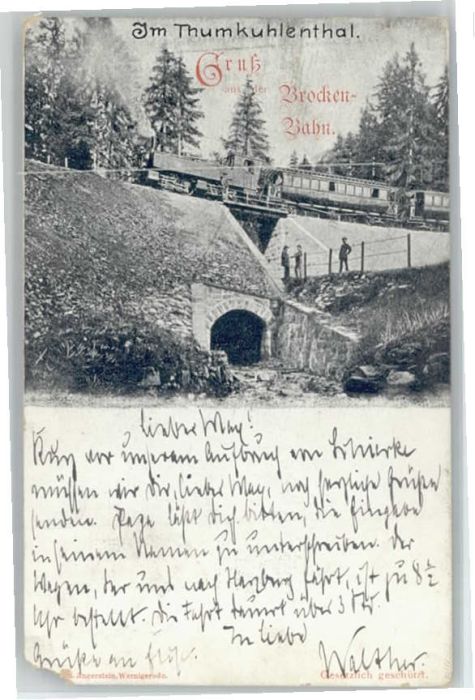 Im Thumkuhlenthal.
Gruß
aus der Brocken-
Bahn.
Lieber Way!
Kurz vor unserem Aufbruch von Schierke
müssen wir Dir, lieber Way, noch herzliche Grüße
senden. läßt Dich bitten, die Eingabe
in seinem Namen zu unterschreiben. Der
Wagen, der uns nach Harzburg fährt, ist zu 8 1/2
Uhr bestellt. Die Fahrt dauert über 3 Std.
In Liebe
Grüße an Walther.
Angerstein, Wernigerode.
Gesetzlich geschützt.